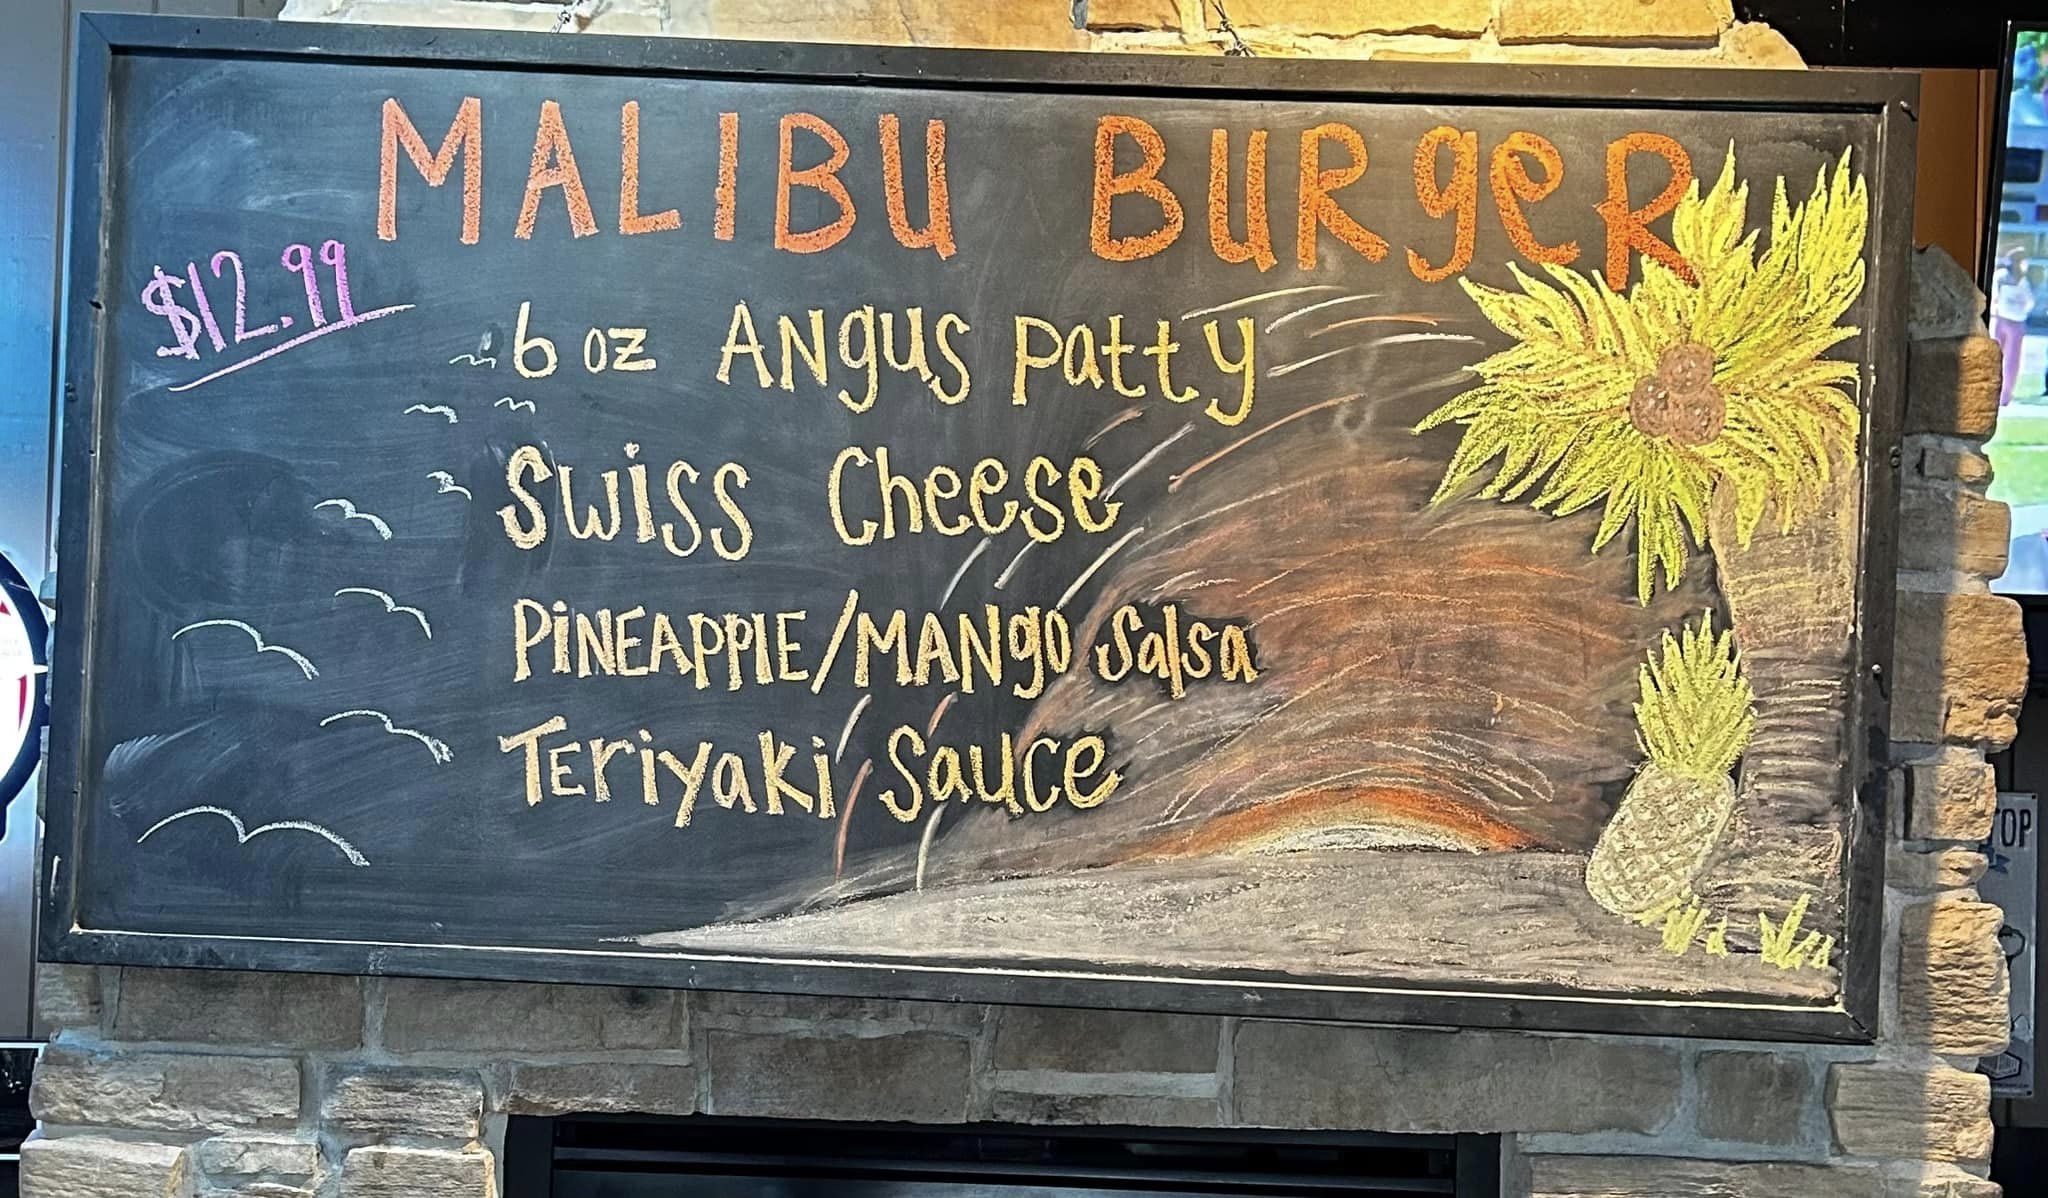 MALIBU BURgeR
$12.99
6 oz ANgus patty
Swiss Cheese
PiNEAPPlE/MANgo Salsa
Teriyaki Sauce
TOP